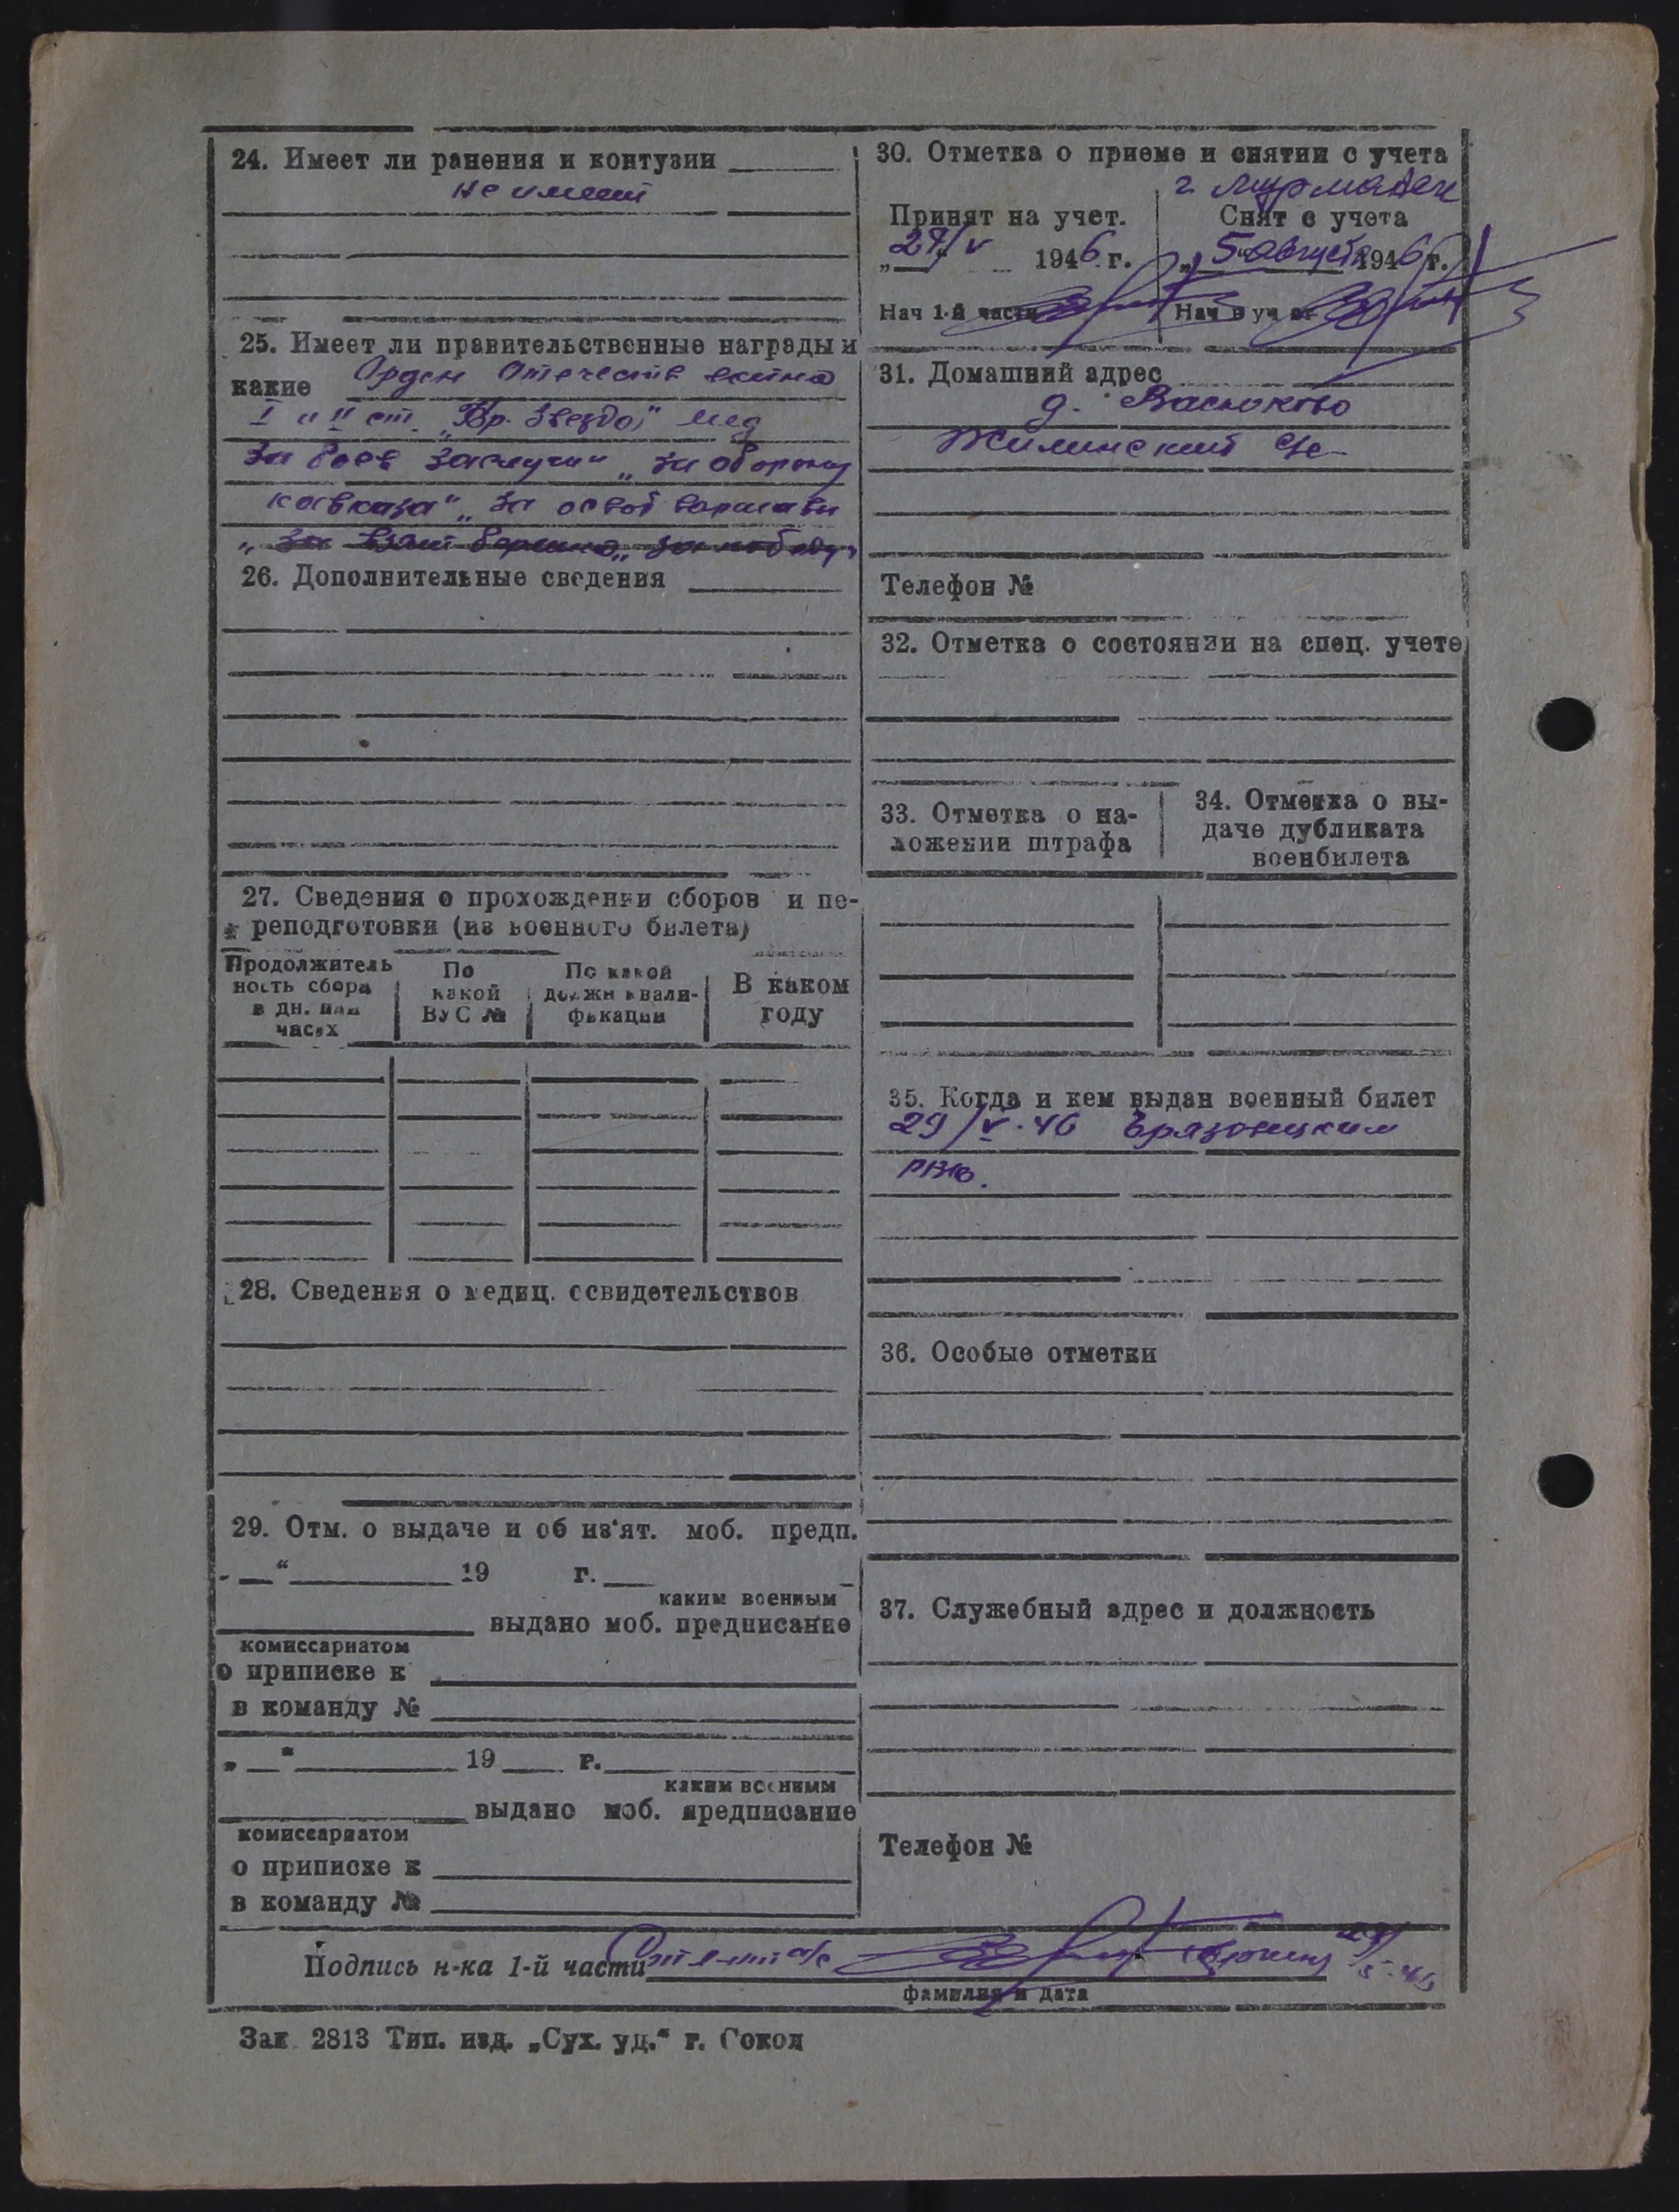 24. Имеет ли ранения и контузии
не имеет
25. Имеет ли правительственные награды и
какие Орден Отечеств войны
I и II ст. „Кр. Звезда" мед
за боев заслуги" „за оборону
кавказа" „за освоб варшавы
„за взят берлина„ за победу"
26. Дополнительные сведения
27. Сведения о прохождении сборов и пе-
реподготовки (из военного билета)
Продолжитель
ность сбора
в дн. или
часах
По
какой
ВУС №
По какой
должн квали-
фикации
В каком
году
28. Сведения о медиц. освидетельствов
29. Отм. о выдаче и об из'ят. моб. предп.
„ “ 19 г.
каким военным
выдано моб. предписание
комиссариатом
о приписке к
в команду №
„ “ 19 г.
каким военным
выдано моб. предписание
комиссариатом
о приписке к
в команду №
30. Отметка о приеме и снятии с учета
г. Мурманск
Принят на учет.
„27/V 1946 г.
Нач 1-й части
Снят с учета
„5 августа 1946 г.
Нач в уч
31. Домашний адрес
д. Васюково
Жилинский с/с
Телефон №
32. Отметка о состоянии на спец. учете
33. Отметка о на-
ложении штрафа
34. Отметка о вы-
даче дубликата
военбилета
35. Когда и кем выдан военный билет
29/V-46 Грязовецким
РВК.
36. Особые отметки
37. Служебный адрес и должность
Телефон №
Подпись н-ка 1-й части
фамилия и дата
Зак 2813 Тип. изд. „Сух. уд.“ г. Сокол